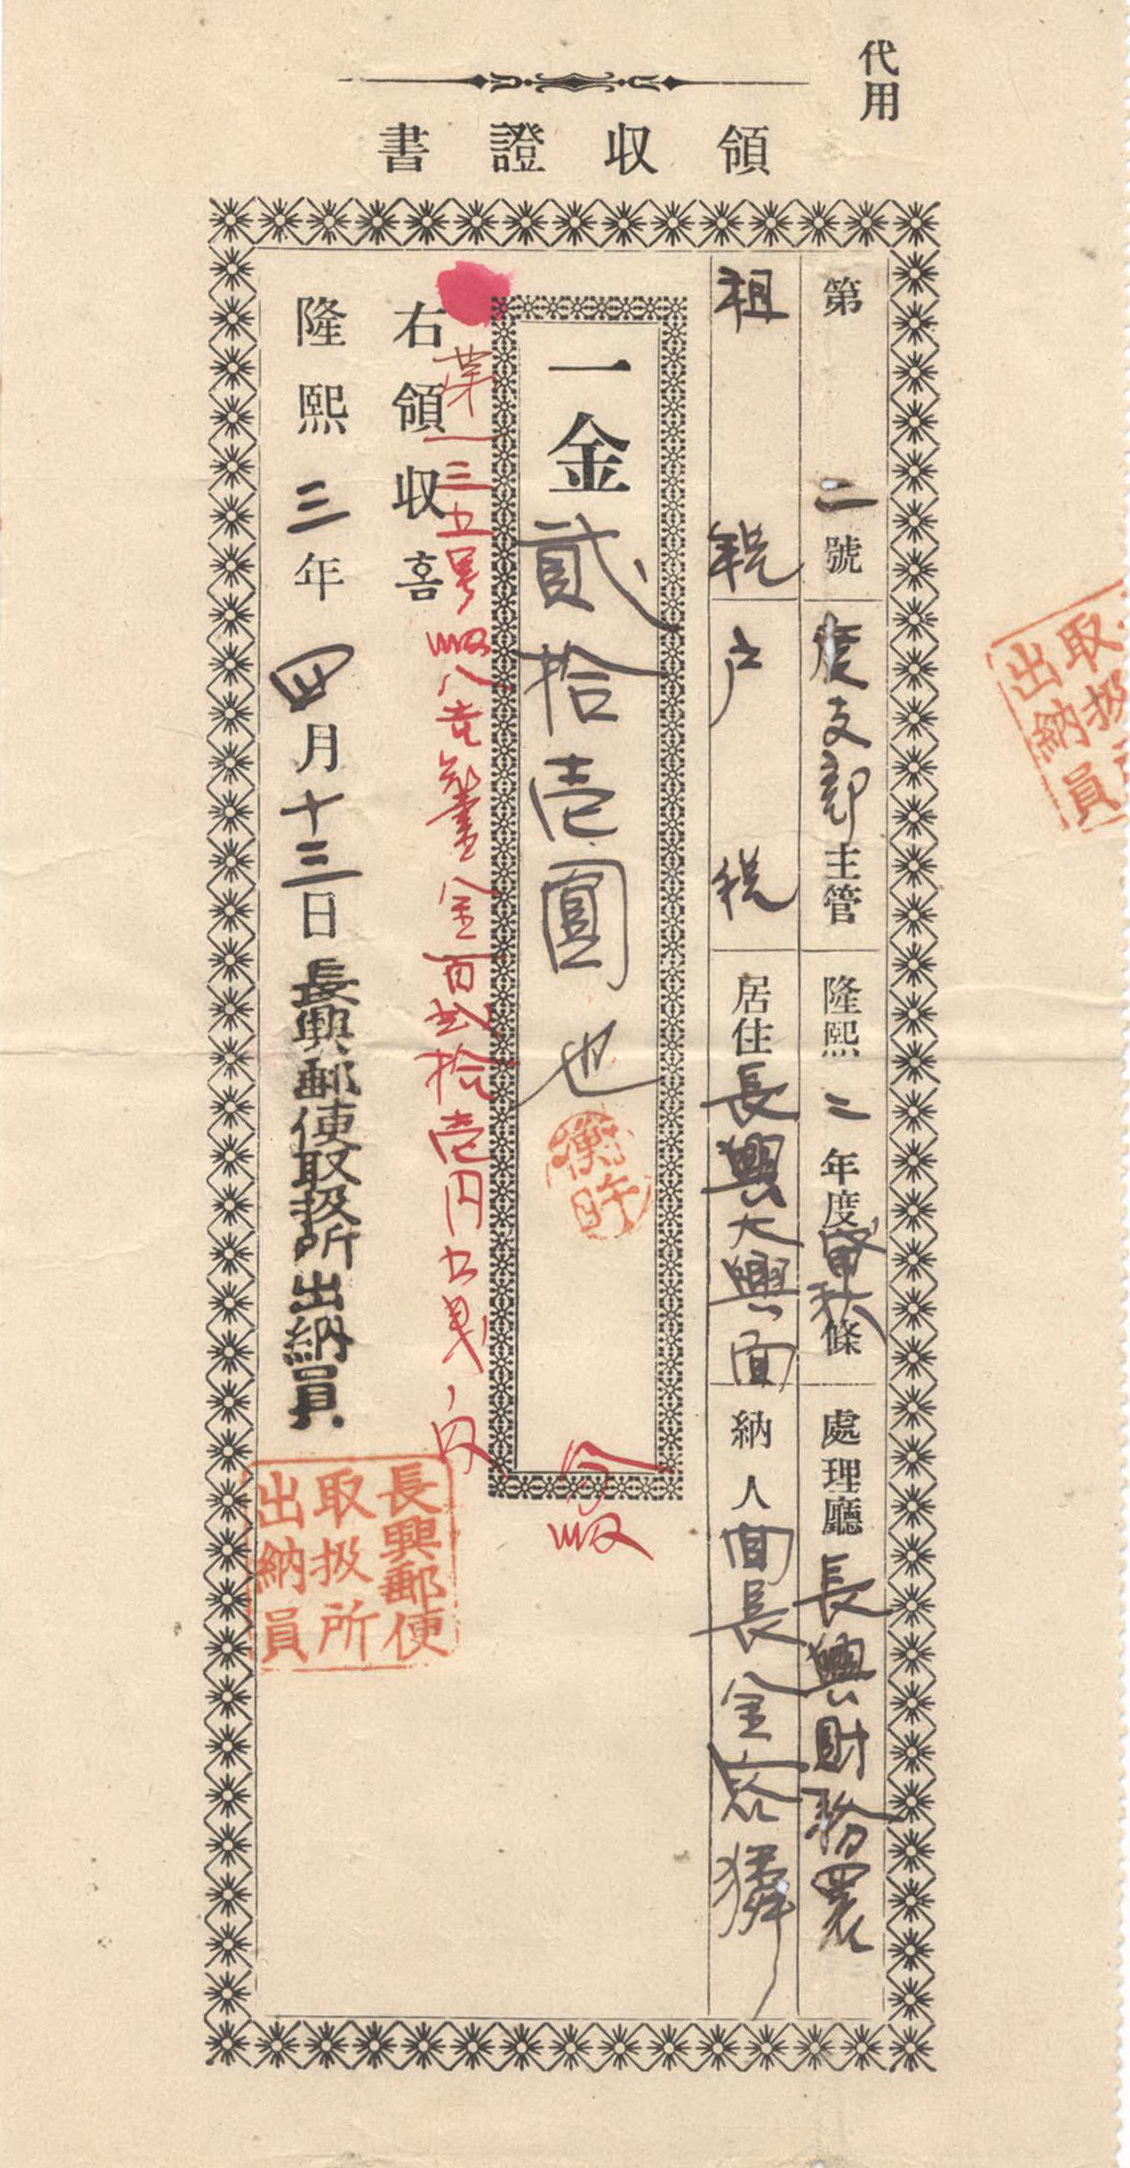 代用
領收證書
第二號 度支部主管 隆熙二年度 秋條 處理廳 長興財務署
租稅 戶稅 居住 長興大興面 納人 面長 金
一金貳拾壹圓也
第一三五号 金百貳拾壱円五 内
右領收홈
隆熙三年四月十三日 長興郵便取扱所出納員
長興郵便
取扱所
出納員
取扱
出納員